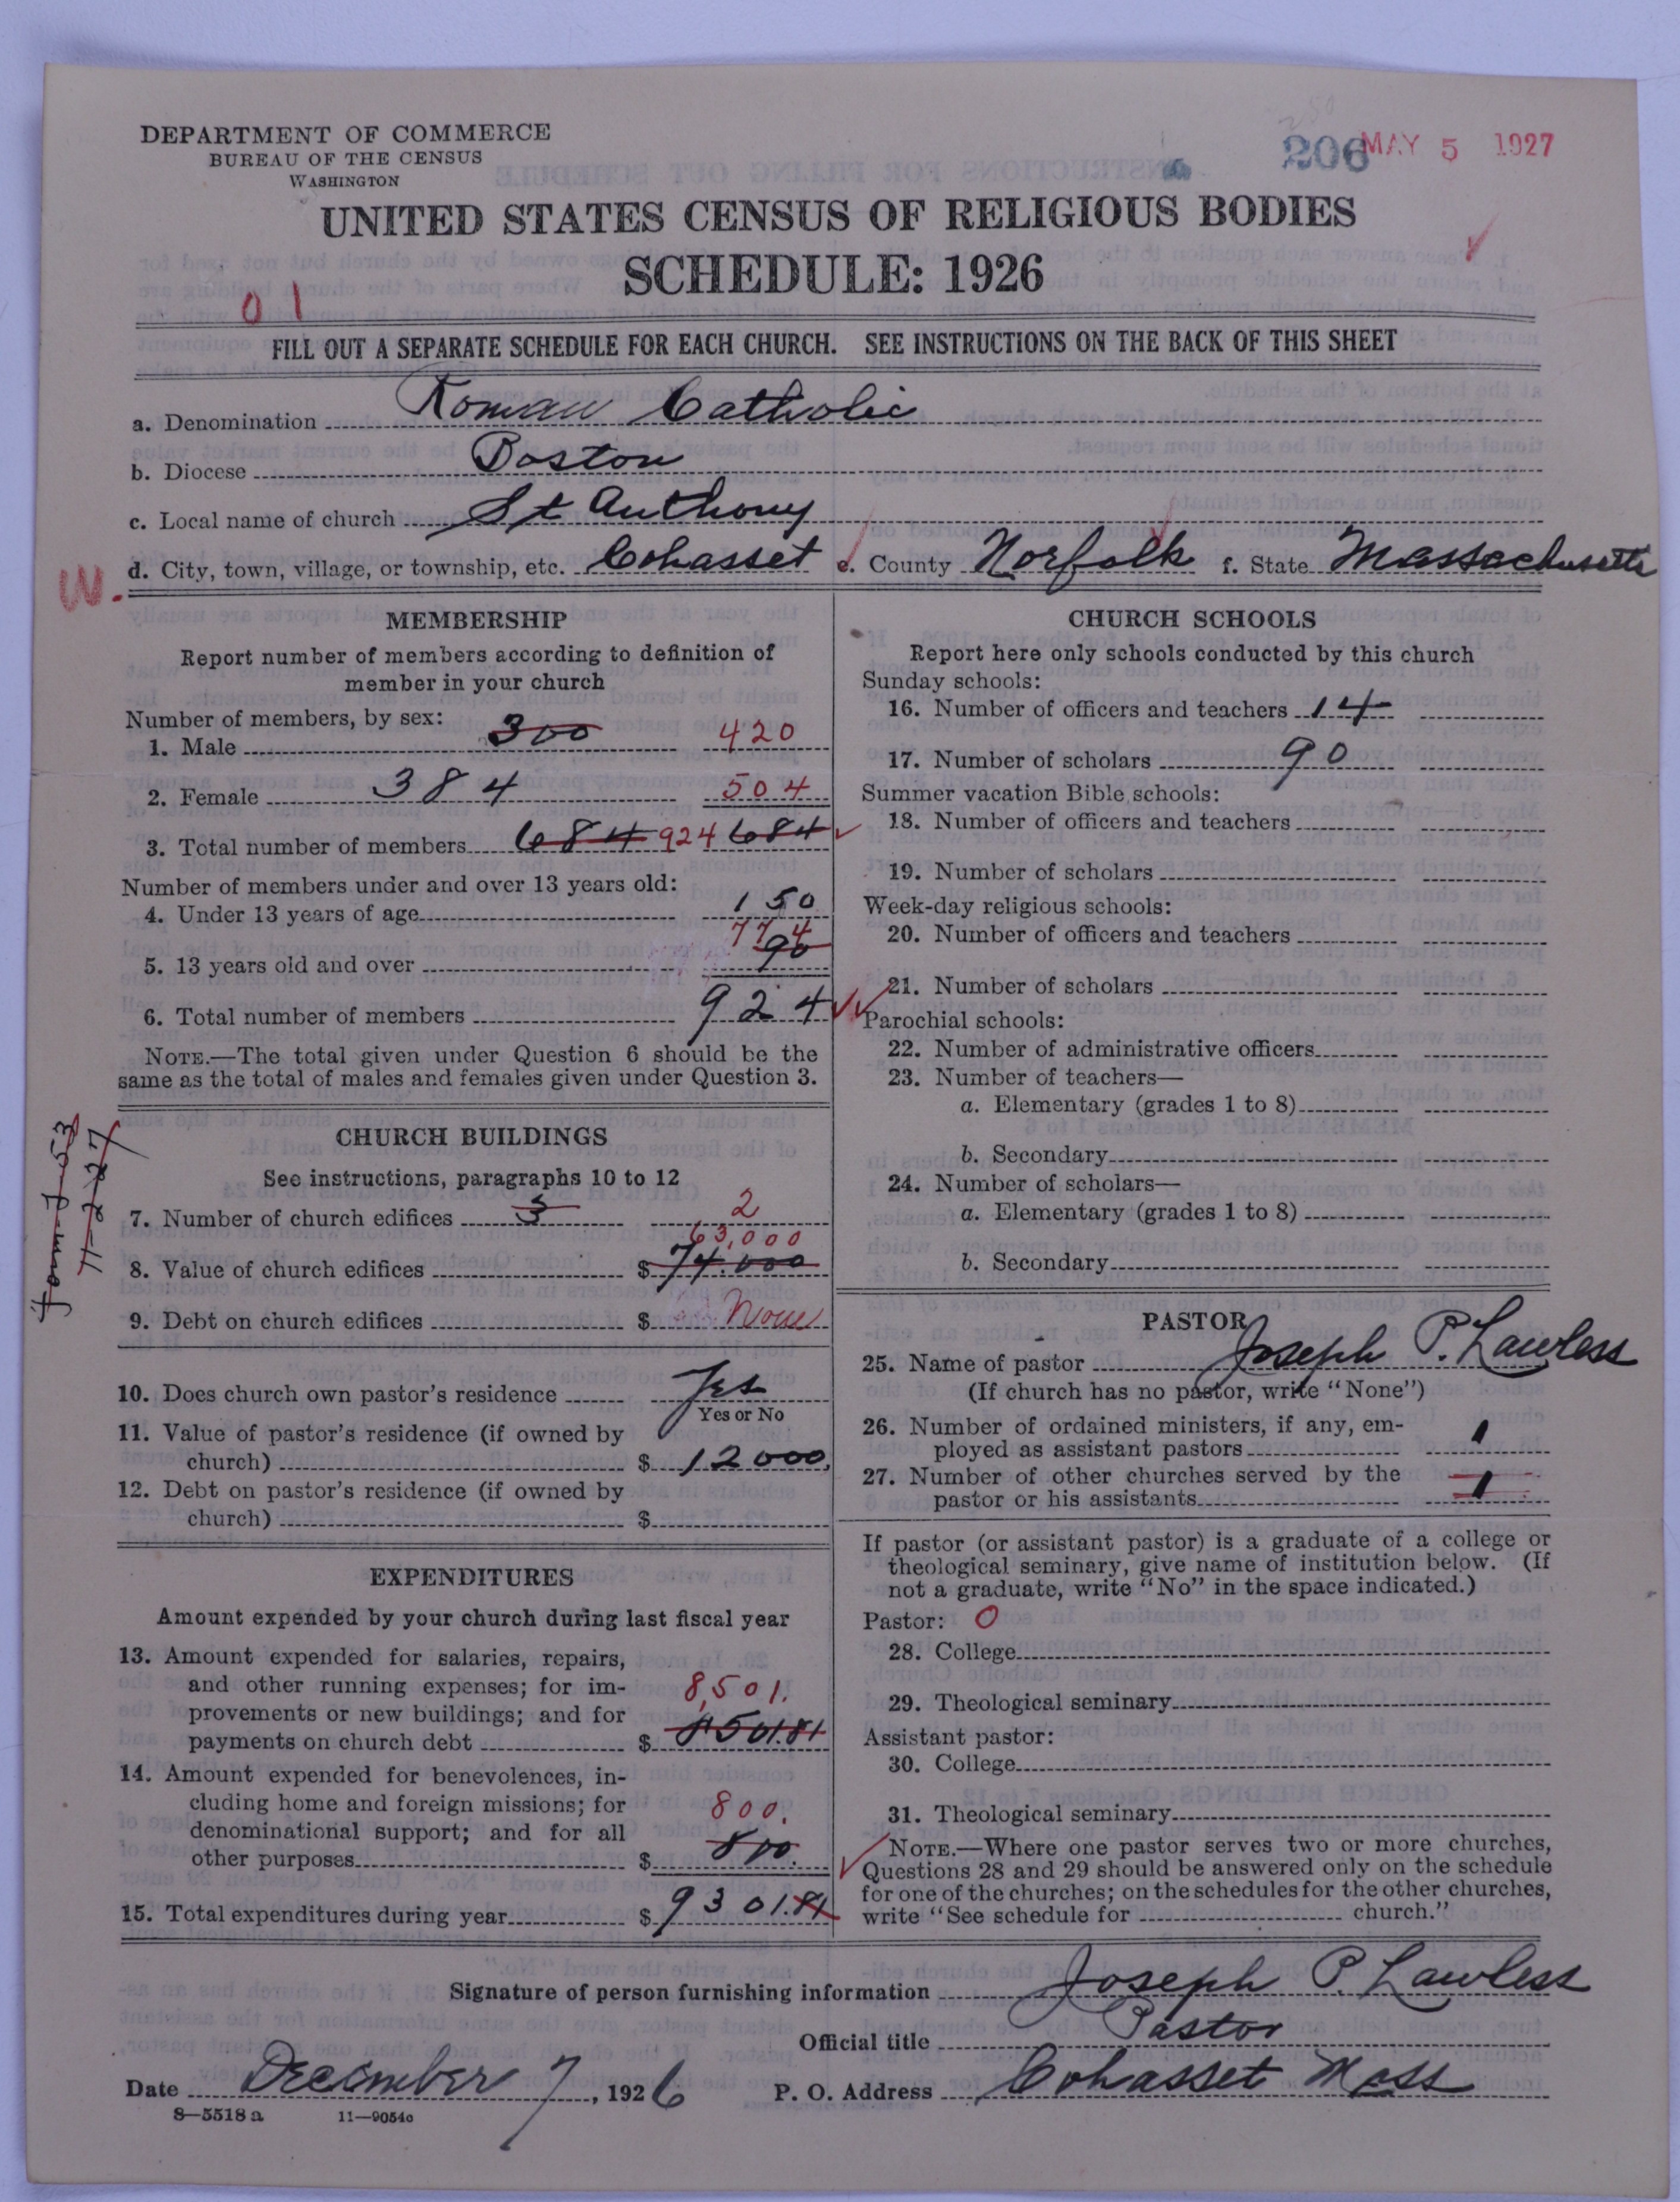 DEPARTMENT OF COMMERCE
BUREAU OF THE CENSUS
WASHINGTON
206 MAY 5 1927
UNITED STATES CENSUS OF RELIGIOUS BODIES
SCHEDULE: 1926
01
FILL OUT A SEPARATE SCHEDULE FOR EACH CHURCH. SEE INSTRUCTIONS ON THE BACK OF THIS SHEET
a. Denomination Roman Catholic
b. Diocese Boston
c. Local name of church St Anthony
W. d. City, town, village, or township, etc. Cohasset e. County Norfolk f. State Massachusetts
MEMBERSHIP
Report number of members according to definition of
member in your church
Number of members, by sex:
1. Male 300 420
2. Female 384 504
3. Total number of members 684 924 684
Number of members under and over 13 years old:
4. Under 13 years of age 150
774
5. 13 years old and over 90
6. Total number of members 924
NOTE.—The total given under Question 6 should be the
same as the total of males and females given under Question 3.
CHURCH BUILDINGS
See instructions, paragraphs 10 to 12
7. Number of church edifices 3 2
63,000
8. Value of church edifices $ 74.000
9. Debt on church edifices $ None
10. Does church own pastor's residence Yes
Yes or No
11. Value of pastor's residence (if owned by
church) $ 12000
12. Debt on pastor's residence (if owned by
church) $
11-2-27
EXPENDITURES
Amount expended by your church during last fiscal year
13. Amount expended for salaries, repairs,
and other running expenses; for im-
provements or new buildings; and for 8,501.
payments on church debt $ 8501.81
14. Amount expended for benevolences, in-
cluding home and foreign missions; for 800.
denominational support; and for all
other purposes $ 800.
15. Total expenditures during year $ 9301.81
CHURCH SCHOOLS
Report here only schools conducted by this church
Sunday schools:
16. Number of officers and teachers 14
17. Number of scholars 90
Summer vacation Bible schools:
18. Number of officers and teachers
19. Number of scholars
Week-day religious schools:
20. Number of officers and teachers
21. Number of scholars
Parochial schools:
22. Number of administrative officers
23. Number of teachers—
a. Elementary (grades 1 to 8)
b. Secondary
24. Number of scholars—
a. Elementary (grades 1 to 8)
b. Secondary
PASTOR
25. Name of pastor Joseph P. Lawless
(If church has no pastor, write "None")
26. Number of ordained ministers, if any, em-
ployed as assistant pastors 1
27. Number of other churches served by the
pastor or his assistants 1
If pastor (or assistant pastor) is a graduate of a college or
theological seminary, give name of institution below. (If
not a graduate, write "No" in the space indicated.)
Pastor: 0
28. College
29. Theological seminary
Assistant pastor:
30. College
31. Theological seminary
NOTE.—Where one pastor serves two or more churches,
Questions 28 and 29 should be answered only on the schedule
for one of the churches; on the schedules for the other churches,
write "See schedule for church."
Signature of person furnishing information Joseph P. Lawless
Official title Pastor
Date December 7, 1926 P. O. Address Cohasset Mass
8—5518 a 11—9054c